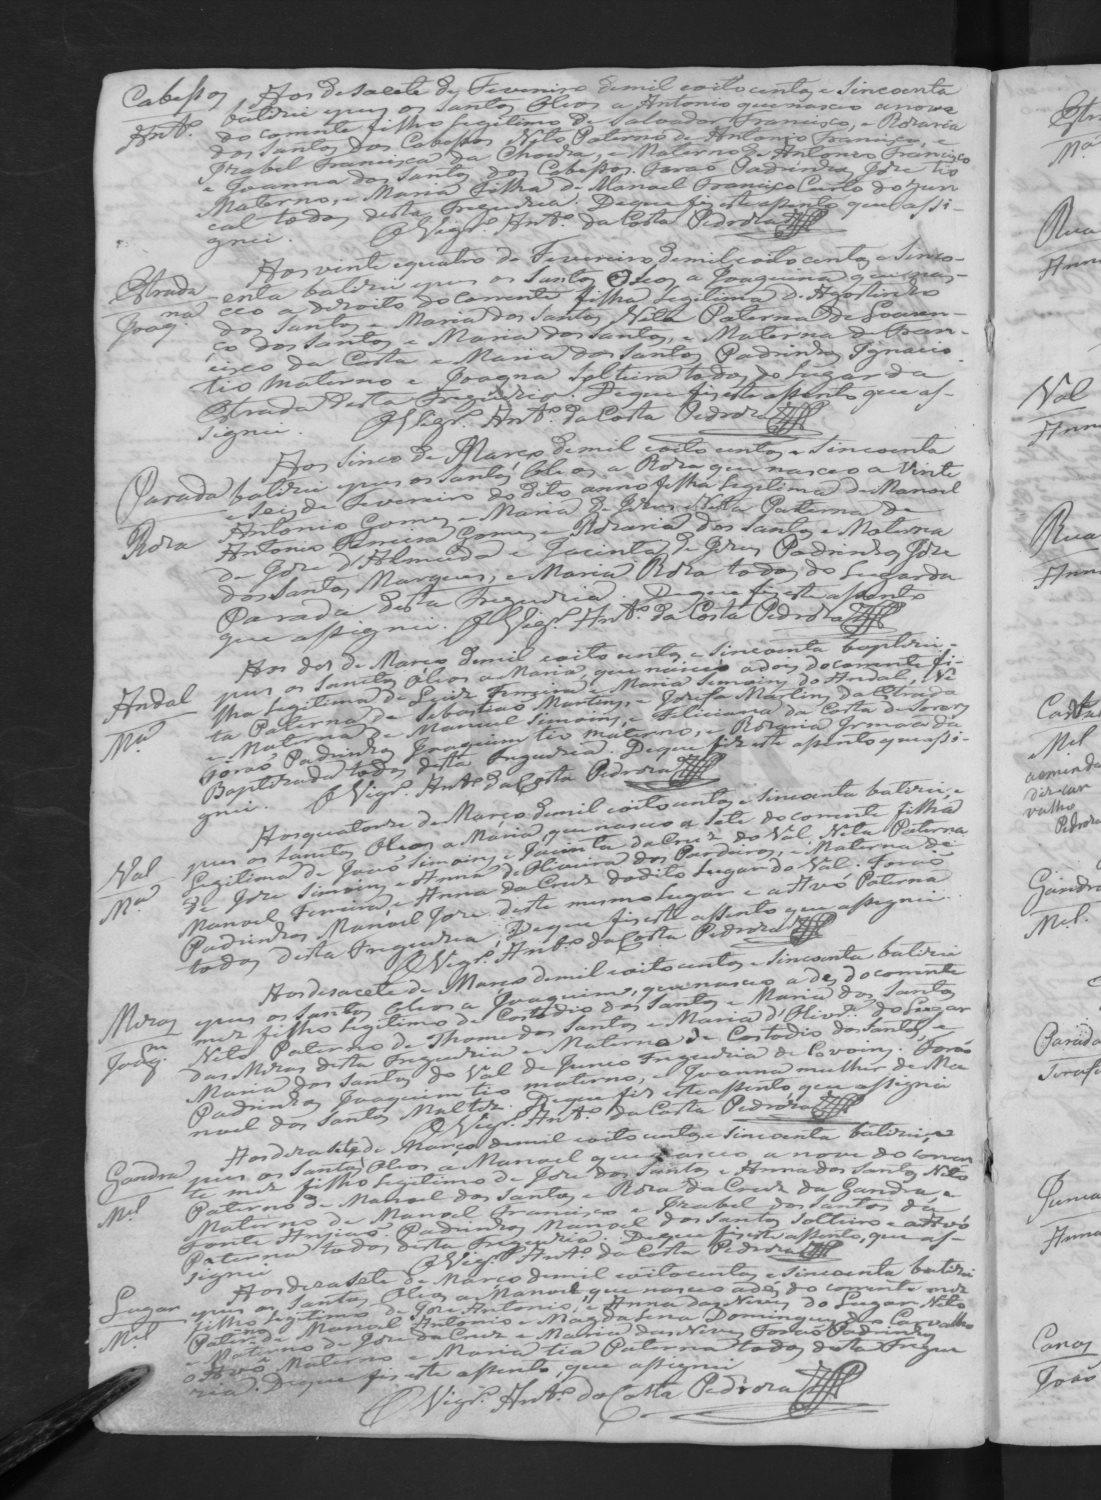 Cabessos
Ant.º
Aos desacete de Fevereiro de mil e oito centos e sincoenta
batizei e pus os Santos Oleos a Antonio que nasceo a nove
do corrente filho legitimo de Salvador Francisco, e Rozaria
dos Santos dos Cabessos Neto Paterno de Antonio Francisco, e
Izabel Francisca da Choira, e Materno de Antonio Francisco
e Joanna dos Santos dos Cabessos. Forão Padrinhos Joze tio
Materno, e Maria filha de Manoel Francisco Curto do Jun
cal todos desta Freguezia. De que fis este assento que assi-
gnei. O Vigr.º Ant.º da Costa Pedroza
Estrada
Joaq.na
Aos vinte e quatro de Fevereiro de mil e oito centos e sinco-
enta batizei e pus os Santos Oleos a Joaquina que nas-
ceo a dizoito do corrente filha legitima d. Agostinho
dos Santos e Maria dos Santos, Neta Paterna de Louren-
ço dos Santos e Maria dos Santos, e Materna de Fran-
cisco da Costa e Maria dos Santos Padrinhos Ignacio
tio Materno e Joaqna Solteira todos do Lugar da
Estrada desta Freguezia. De que fis este assento que as-
signei. O Vigr.º Ant.º da Costa Pedroza
Parada
Roza
Aos sinco de Março de mil e oito centos e sincoenta
batizei e pus os Santos Oleos a Roza que nasceo a vinte
e seis de Fevereiro do dito anno filha legitima de Manoel
Antonio Gomes e Maria de Jezus, Neta Paterna de
Antonio Ferreira Gomes e Rozaria dos Santos e Materna
de Joze d'Almeida e Jacinta de Jezus Padrinhos Joze
dos Santos Marques, e Maria Roza todos do Lugar da
Parada desta Freguezia. De que fis este assento
que assignei. O Vigr.º Ant.º da Costa Pedroza
Andal
M.ª
Aos des de Março de mil e oito centos e sincoenta baptizei e
pus os Santos Oleos a Maria, que nasceo a dois do corrente fi-
lha legitima de Luiz Ferreira e Maria Simois do Andal, Ne-
ta Paterna de Sebastião Martins, e Jozefa Martins da Estrada
e Materna de Manoel Simois, e Feliciana da Costa de
Forão Padrinhos Joaquim tio materno, e Irmaa da
Baptizada todos desta Freguezia. De que fis este assento que assi-
gnei. O Vigr.º Ant.º da Costa Pedroza
Val
M.ª
Aos quatorze de Março de mil e oito centos e sincoenta batizei, e
pus os Santos Oleos a Maria, que nasceo a sete do corrente filha
Legitima de João Simois e Jacinta da Cruz do Val Neta Paterna
de Joze Simois e Anna d'Oliveira dos Pardeiros, e Materna de
Manoel Ferreira e Anna da Cruz do dito Lugar do Val. Forão
Padrinhos Manoel Joze deste mesmo Lugar e a Avó Paterna
todos desta Freguezia, De que fis este assento que assignei
O Vigr.º Ant.º da Costa Pedroza
Miros
Joaq.m
Aos desacete de Março de mil e oito centos e sincoenta batizei
e pus os Santos Oleos a Joaquim, que nasceo a des do corrente
mez filho legitimo de Custodio dos Santos e Maria dos Santos
Neto Paterno de Thome dos Santos e Maria d'Olivr.ª do Lugar
das Miros desta Freguezia e Materno de Custodio dos Santos, e
Maria dos Santos do Val de Junco Freguezia de Covois. Forão
Padrinhos Joaquim tio materno, e Joanna mulher de Ma
noel dos Santos Maltez. De que fiz este assento que assignei
O Vigr.º Ant.º da Costa Pedroza
Gandra
M.el
Aos dezasete de Março de mil e oito centos e sincoenta batizei, e
pus os Santos Oleos a Manoel que nasceo a nove do corren
te mez filho legitimo de Joze dos Santos e Anna dos Santos Neto
Paterno de Manoel dos Santos e Roza da Cruz da Gandra, e
Materno de Manoel Francisco e Izabel dos Santos da
Fonte Padrinhos Manoel dos Santos Solteiro e a Avó
Paterna todos desta Freguezia. De que fis este assento, que as-
signei O Vigr.º Ant.º da Costa Pedroza
Lugar
M.el
Aos dezasete de Março de mil e oito centos e sincoenta batizei
e pus os Santos Oleos a Manoel, que nasceo a des do corrente mez
filho legitimo de Joze Antonio, e Anna das Neves do Lugar Neto
Paterno de Manoel Antonio e Magdalena Domingues do Carvalho
e Materno de Joze da Cruz e Maria das Neves Forão Padrinhos
o Avô Materno e Maria tia Paterna todos desta Fregue
zia. De que fis este assento, que assignei
O Vigr.º Ant.º da Costa Pedroza
M.ª
Rua
Anna
Val
Anna
Rua
Anna
Mel
Pedroza
Gandra
M.el
Parada
Anna
João